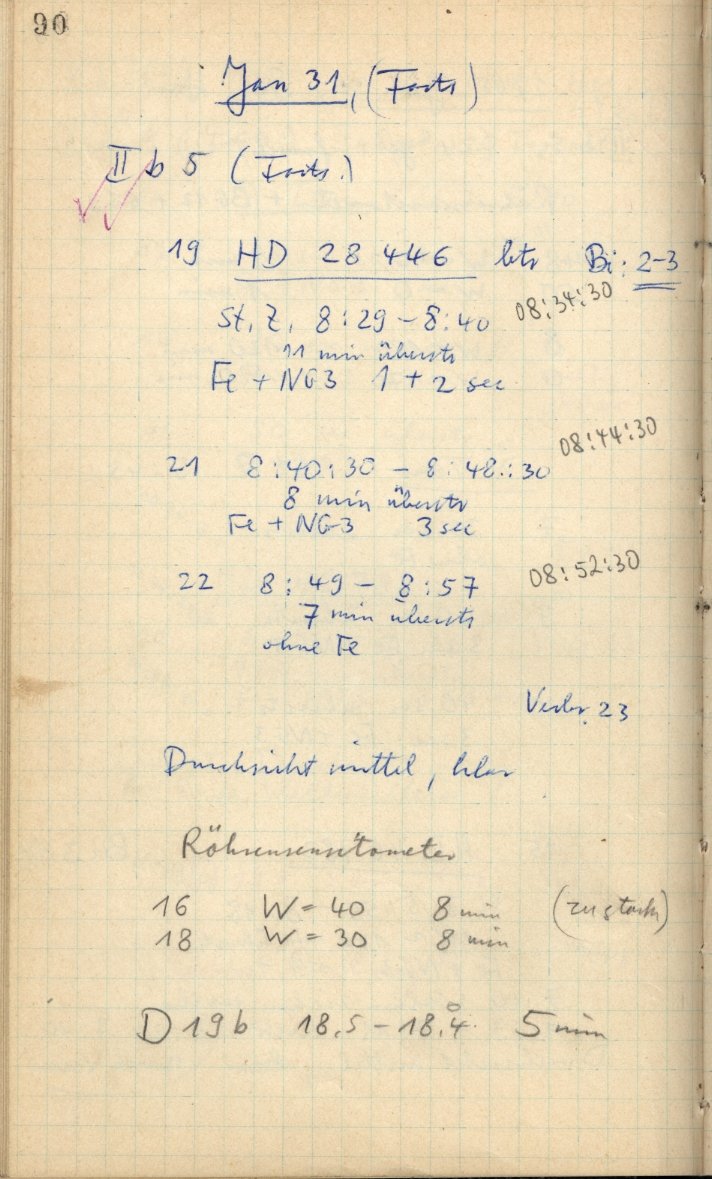 90
Jan 31, (Forts)
II b 5 (Forts.)
19 HD 28 446 btr Bi: 2-3
St. Z. 8:29 - 8:40 08:34:30
11 min überstr
Fe + NG3 1 + 2 sec
08:44:30
21 8:40:30 - 8:48:30
8 min überstr
Fe + NG3 3 sec
22 8:49 - 8:57 08:52:30
7 min überstr
ohne Fe
23
Durchsicht mittel, klar
Röhrensensitometer
16 W = 40 8 min (zu stark)
18 W = 30 8 min
D 19 b 18.5 - 18.4° 5 min